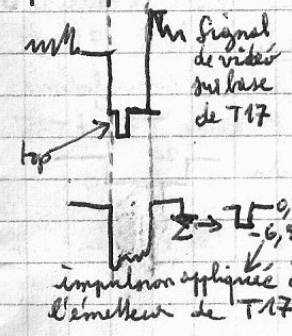 Signal
de vidéo
sur base
de T17
top
Σ → 0,
-6,
impulsion appliquée à
l'émetteur de T17